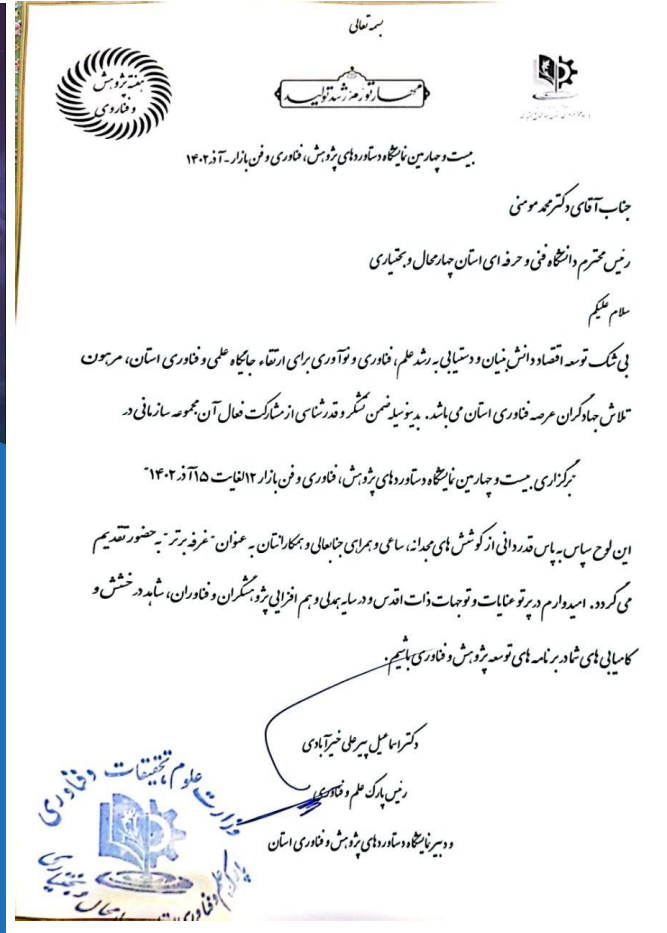 بسمه تعالی
هفته پژوهش
و فناوری
مهار تورم، رشد تولید
بیست و چهارمین نمایشگاه دستاوردهای پژوهش، فناوری و فن بازار - آذر ۱۴۰۲
جناب آقای دکتر محمد مومنی
رئیس محترم دانشگاه فنی و حرفه ای استان چهارمحال و بختیاری
سلام علیکم
بی شک توسعه اقتصاد دانش بنیان و دستیابی به رشد علم، فناوری و نوآوری برای ارتقاء جایگاه علمی و فناوری استان، مرهون
تلاش جهادگران عرصه فناوری استان می باشد. بدینوسیله ضمن تشکر و قدرشناسی از مشارکت فعال آن مجموعه سازمانی در
"برگزاری بیست و چهارمین نمایشگاه دستاوردهای پژوهش، فناوری و فن بازار ۱۲ لغایت ۱۵ آذر ۱۴۰۲"
این لوح سپاس به پاس قدردانی از کوشش های مجدانه، ساعی و همراهی جنابعالی و همکارانتان به عنوان "غرفه برتر" به حضور تقدیم
می گردد. امیدوارم در پرتو عنایات و توجهات ذات اقدس و در سایه همدلی و هم افزایی پژوهشگران و فناوران، شاهد درخشش و
کامیابی های شما در برنامه های توسعه پژوهش و فناوری باشیم.
دکتر اسماعیل پیرعلی خیرآبادی
رئیس پارک علم و فناوری
و دبیر نمایشگاه دستاوردهای پژوهش و فناوری استان
وزارت علوم، تحقیقات و فناوری
پارک علم و فناوری استان چهارمحال و بختیاری